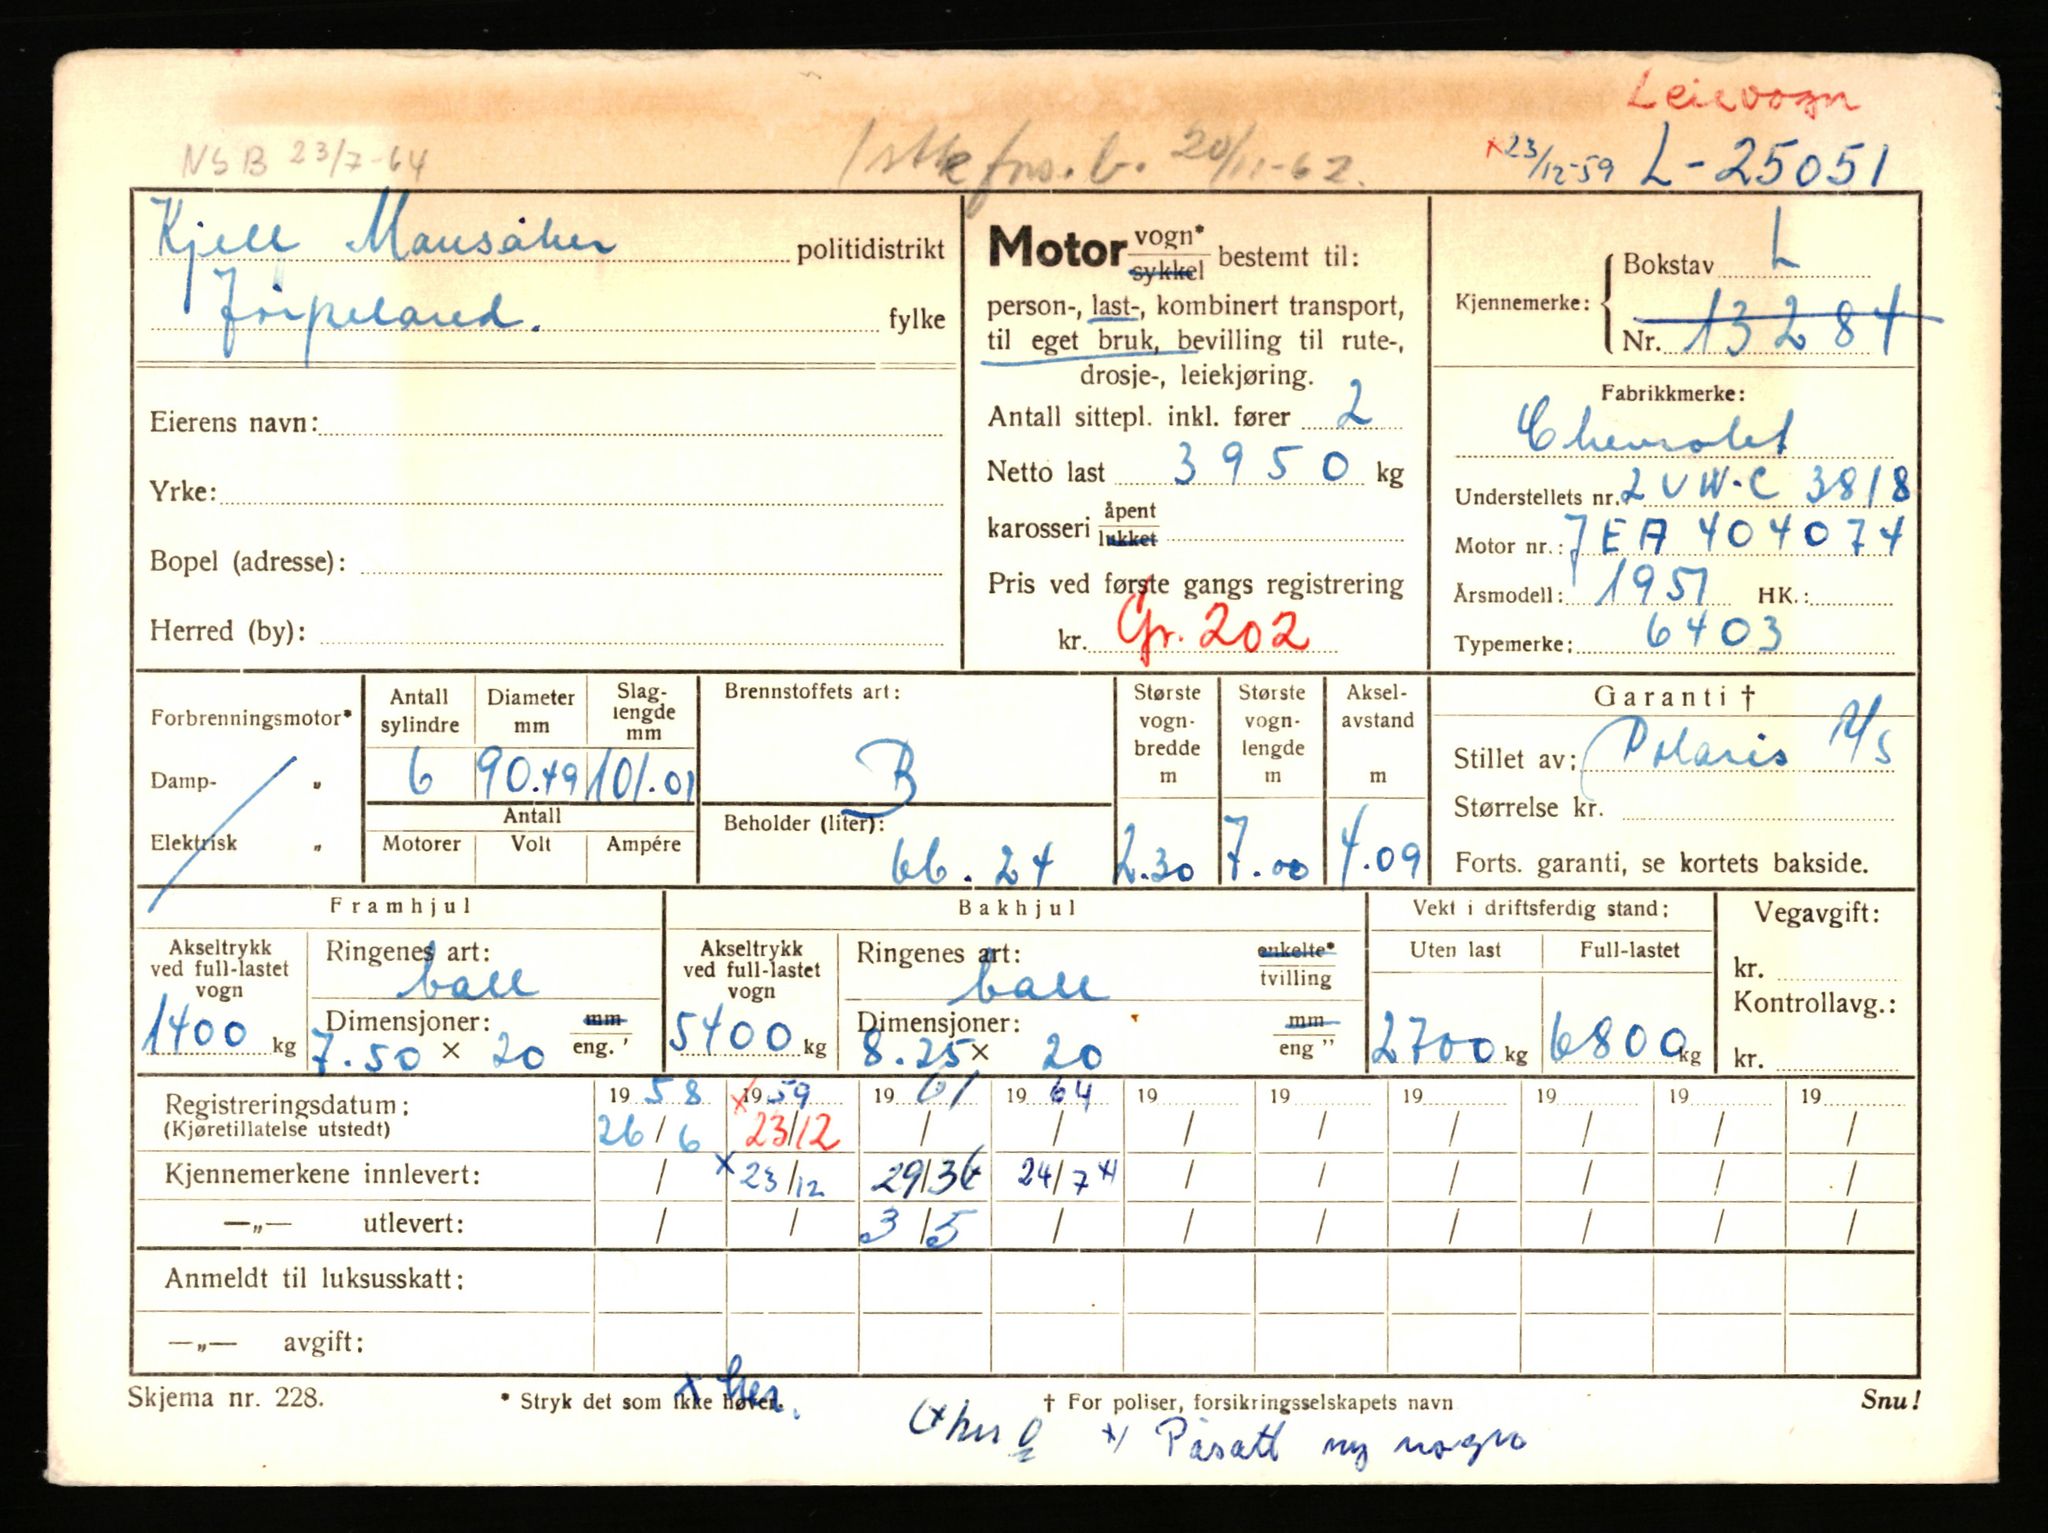 Leievogn
NSB 23/7-64
1 stk frs. b. 20/11-62.
x 23/12-59 L-25051
Kjell Mausåker politidistrikt
Jørpeland. fylke
Eierens navn:
Yrke:
Bopel (adresse):
Herred (by):
Motor vogn* / sykkel bestemt til:
person-, last-, kombinert transport,
til eget bruk, bevilling til rute-,
drosje-, leiekjøring.
Antall sittepl. inkl. fører 2
Netto last 3950 kg
karosseri åpent / lukket
Pris ved første gangs registrering
kr. Gr. 202
Kjennemerke: Bokstav L
Nr. 13284
Fabrikkmerke:
Chevrolet
Understellets nr. 2 VW-C 3818
Motor nr.: JEA 404074
Årsmodell: 1951 HK.:
Typemerke: 6403
Forbrenningsmotor*
Damp- „
Elektrisk „
Antall sylindre 6
Diameter mm 90.49
Slag-lengde mm 101.01
Antall
Motorer Volt Ampére
Brennstoffets art:
B
Beholder (liter):
66.24
Største vogn-bredde m 2.30
Største vogn-lengde m 7.00
Aksel-avstand m 4.09
Garanti †
Stillet av: Polaris A/S
Størrelse kr.
Forts. garanti, se kortets bakside.
Framhjul
Akseltrykk ved full-lastet vogn 1400 kg
Ringenes art: ball
Dimensjoner: mm / eng. '
7.50 x 20
Bakhjul
Akseltrykk ved full-lastet vogn 5400 kg
Ringenes art: ball enkelte* / tvilling
Dimensjoner: mm / eng ”
8.25 x 20
Vekt i driftsferdig stand:
Uten last 2700 kg
Full-lastet 6800 kg
Vegavgift:
kr.
Kontrollavg.:
kr.
Registreringsdatum: 19 58 x 19 59 19 61 19 64 19 19 19 19 19 19
(Kjøretillatelse utstedt) 26/6 23/12 / / / / / / / /
Kjennemerkene innlevert: / x 23/12 29/3 24/7 *) / / / / / /
—„— utlevert: / / 3/5 / / / / / / /
Anmeldt til luksusskatt:
—„— avgift:
Skjema nr. 228. * Stryk det som ikke høver. † For poliser, forsikringsselskapets navn Snu!
x her.
*) Påsatt ny vogn